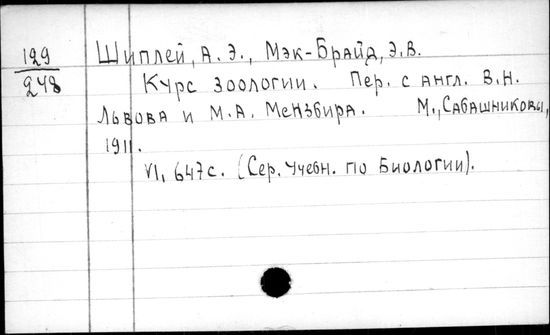 129
248
Шиплей, А. Э., Мэк-Брайд, Э. В.
Курс зоологии. Пер. с англ. В. Н.
Львова и М. А. Мензбира. М., Сабашниковы,
1911.
VI, 647 с. (Сер. учебн. по биологии).